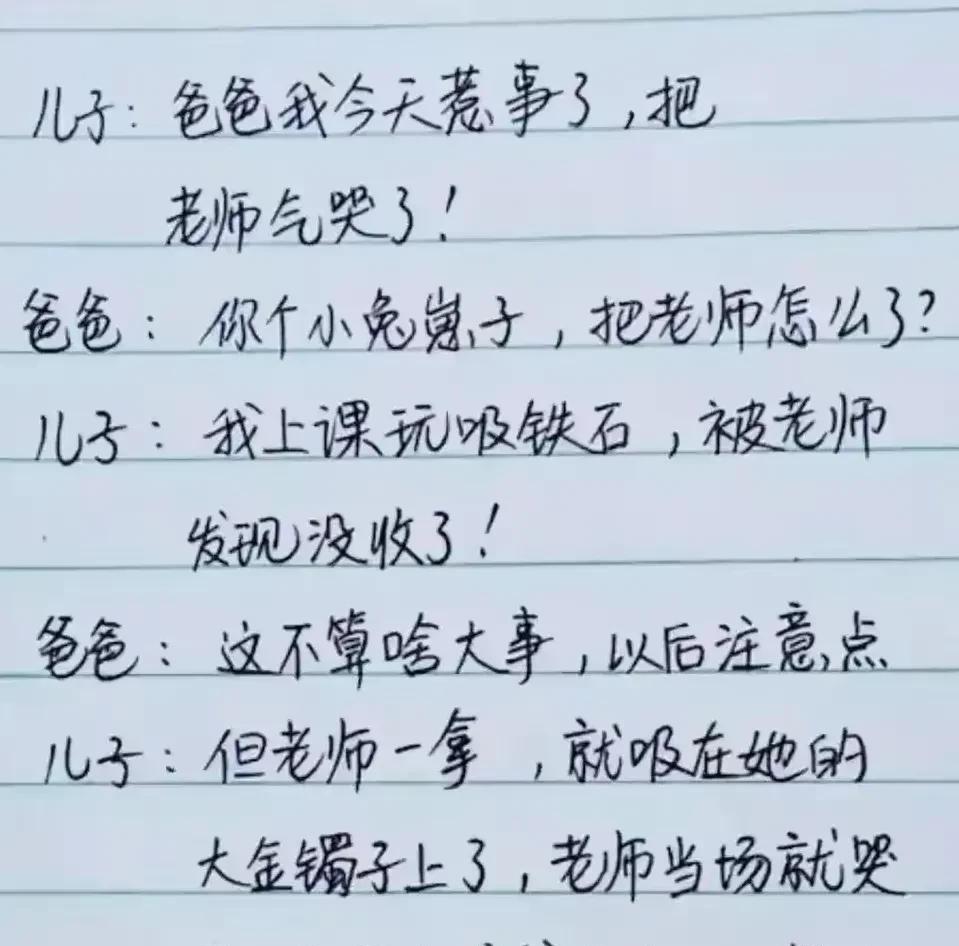 儿子：爸爸我今天惹事了，把
老师气哭了！
爸爸：你个小兔崽子，把老师怎么了？
儿子：我上课玩吸铁石，被老师
发现没收了！
爸爸：这不算啥大事，以后注意点
儿子：但老师一拿，就吸在她的
大金镯子上了，老师当场就哭